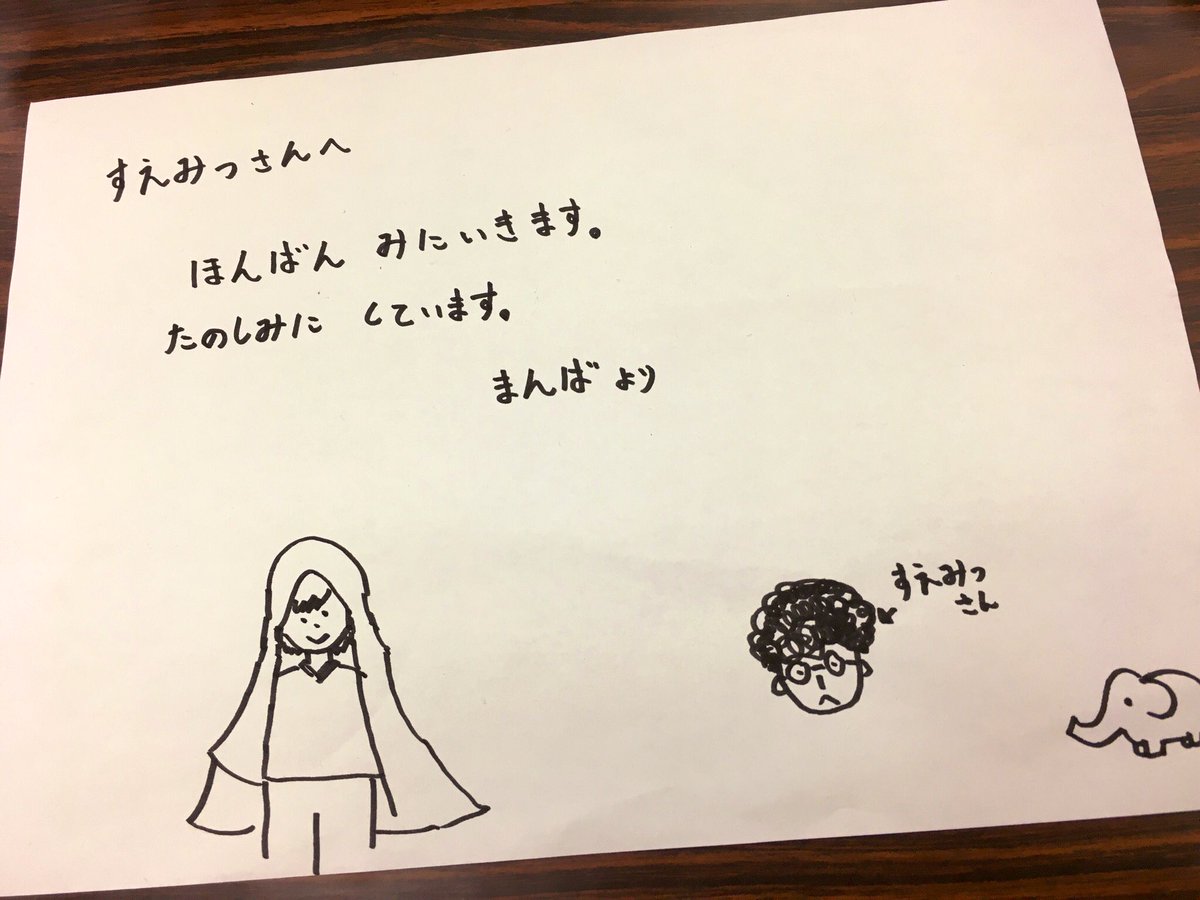 すえみつさんへ
ほんばん みにいきます。
たのしみに しています。
まんば より
すえみつ
さん